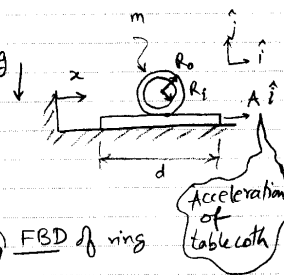 m
ĵ
î
g
x
R₀
Rᵢ
A î
d
Acceleration
of
tablecoth
) FBD of ring